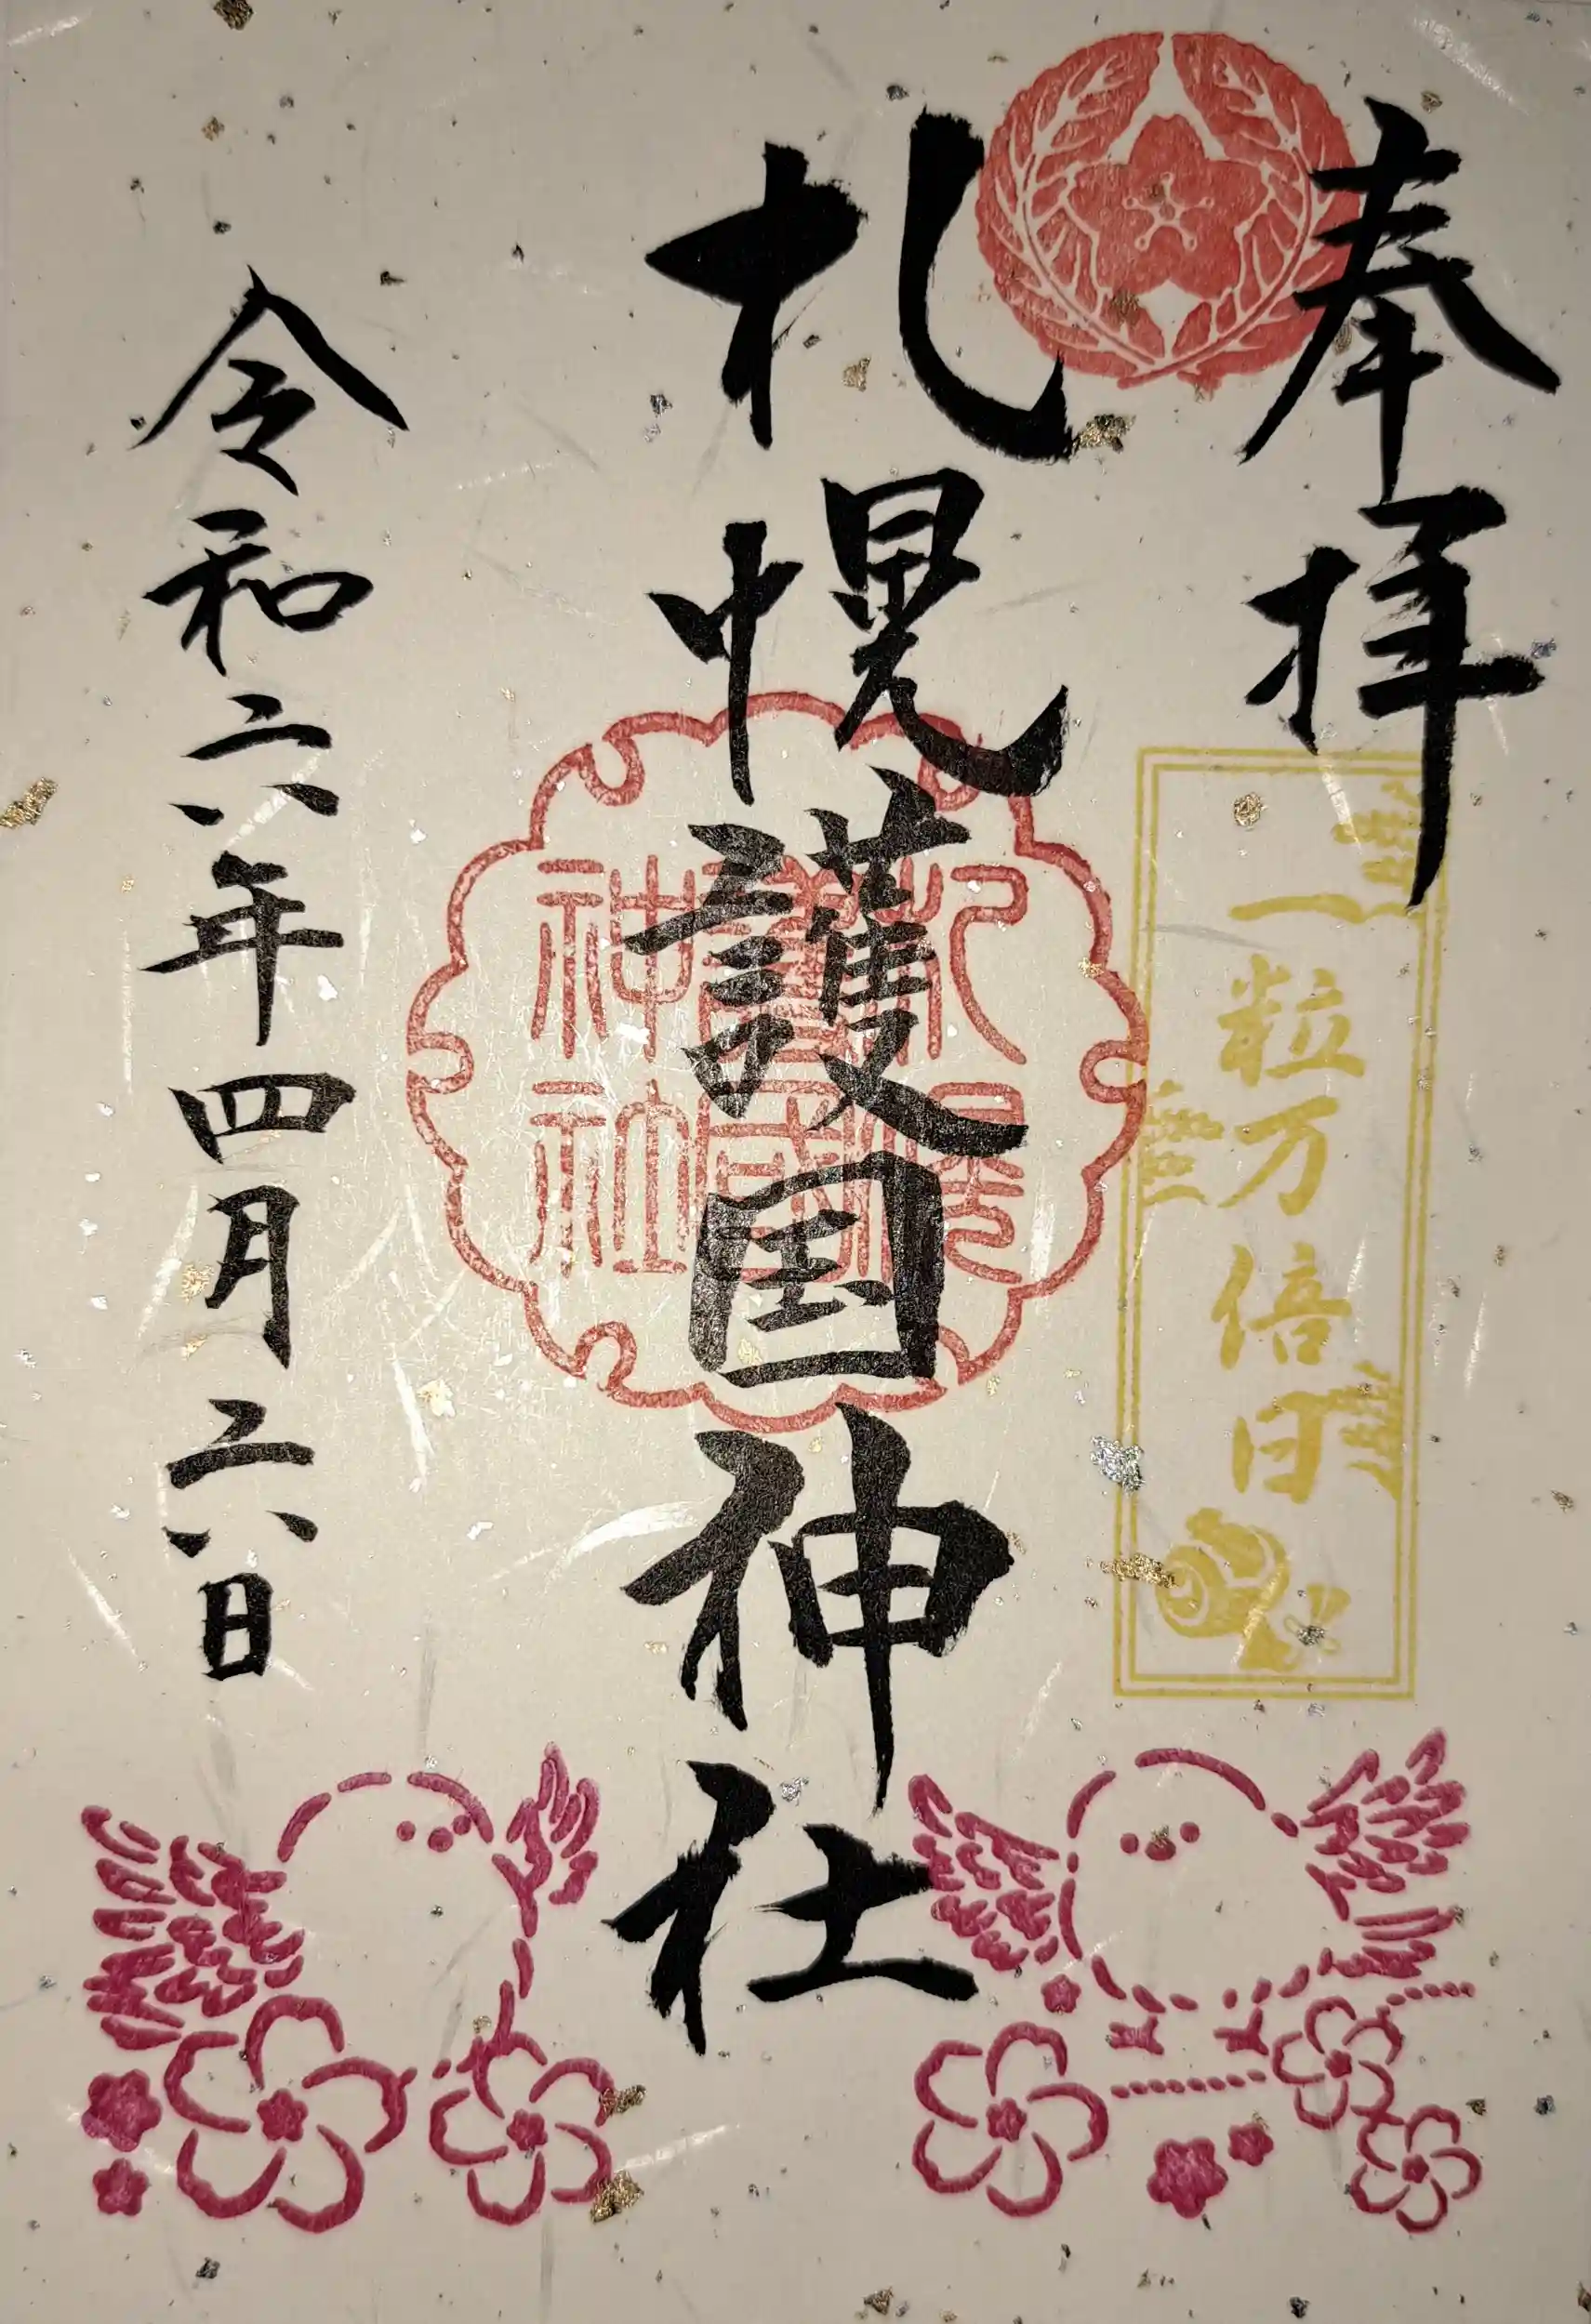 奉拝
一粒万倍日
札幌護国神社
札幌
護國
神社
令和六年四月六日